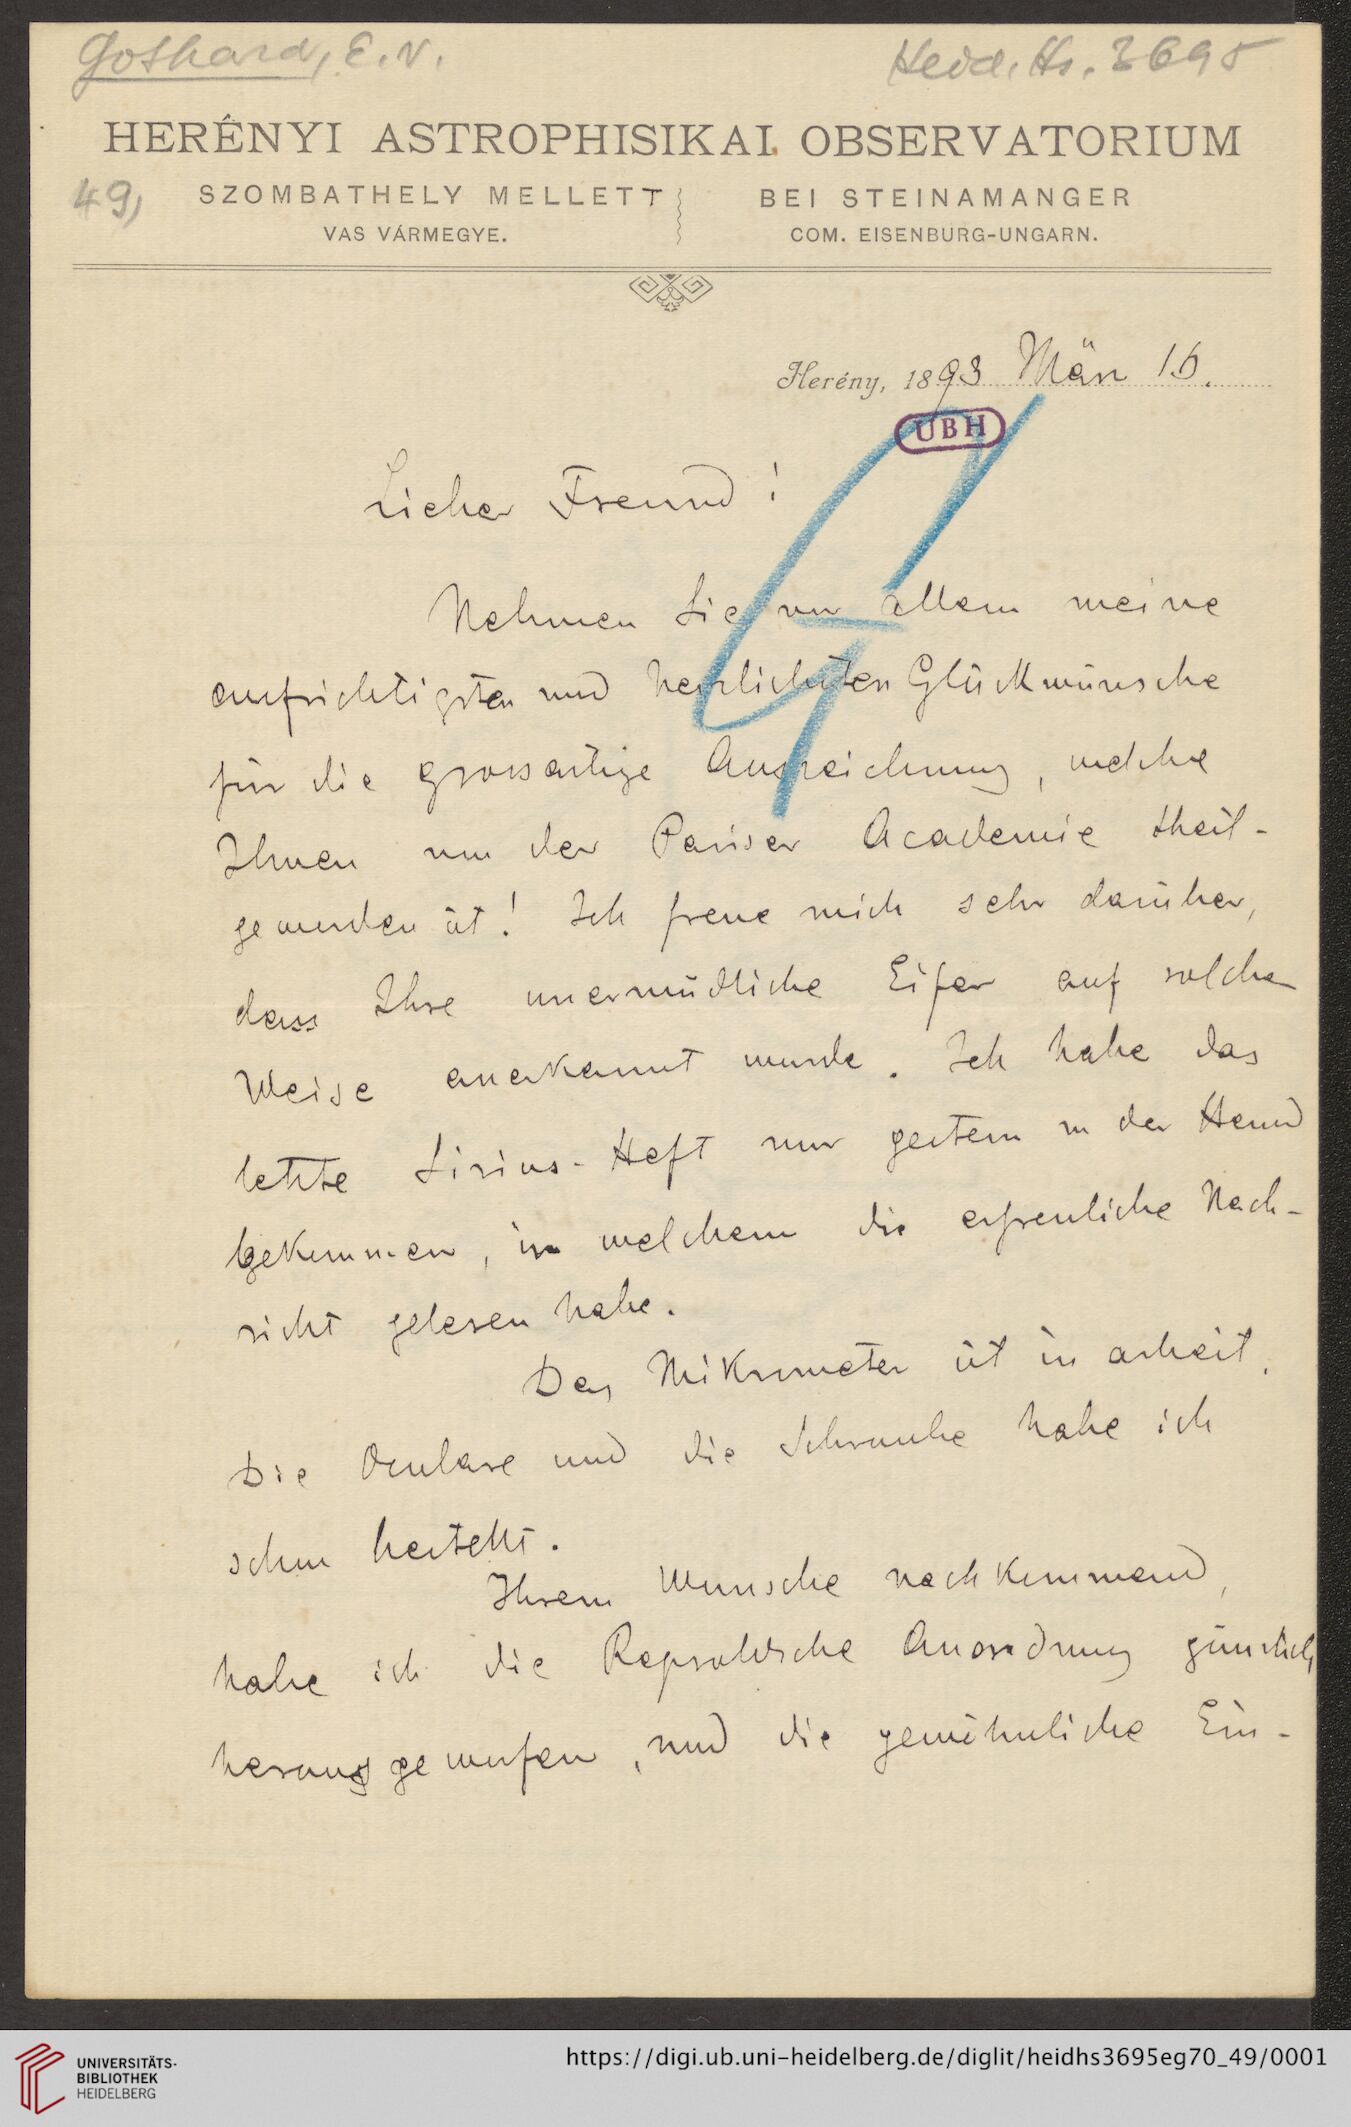 Gothard, E. v.
Heid. Hs. 3695
HERÉNYI ASTROPHISIKAI OBSERVATORIUM
49,
SZOMBATHELY MELLETT
VAS VÁRMEGYE.
BEI STEINAMANGER
COM. EISENBURG-UNGARN.
Herény, 1893 März 16.
UBH
Lieber Freund!
Nehmen Sie vor allem meine
aufrichtigsten und herzlichsten Glückwünsche
für die grossartige Auszeichnung, welche
Ihnen von der Pariser Academie theil-
geworden ist! Ich freue mich sehr darüber,
dass Ihre unermüdliche Eifer auf solcher
Weise anerkannt wurde. Ich habe das
letzte Sirius-Heft nur gestern in der Hand
bekommen, in welchem die erfreuliche Nach-
richt gelesen habe.
Das Mikrometer ist in arbeit.
Die Oculare und die Schraube habe ich
schon bestellt.
Ihrem Wunsche nachkommend,
habe ich die Repsoldsche Anordnung gänzlich
herausgeworfen, und die gewöhnliche Ein-
UNIVERSITÄTS-
BIBLIOTHEK
HEIDELBERG
https://digi.ub.uni-heidelberg.de/diglit/heidhs3695eg70_49/0001